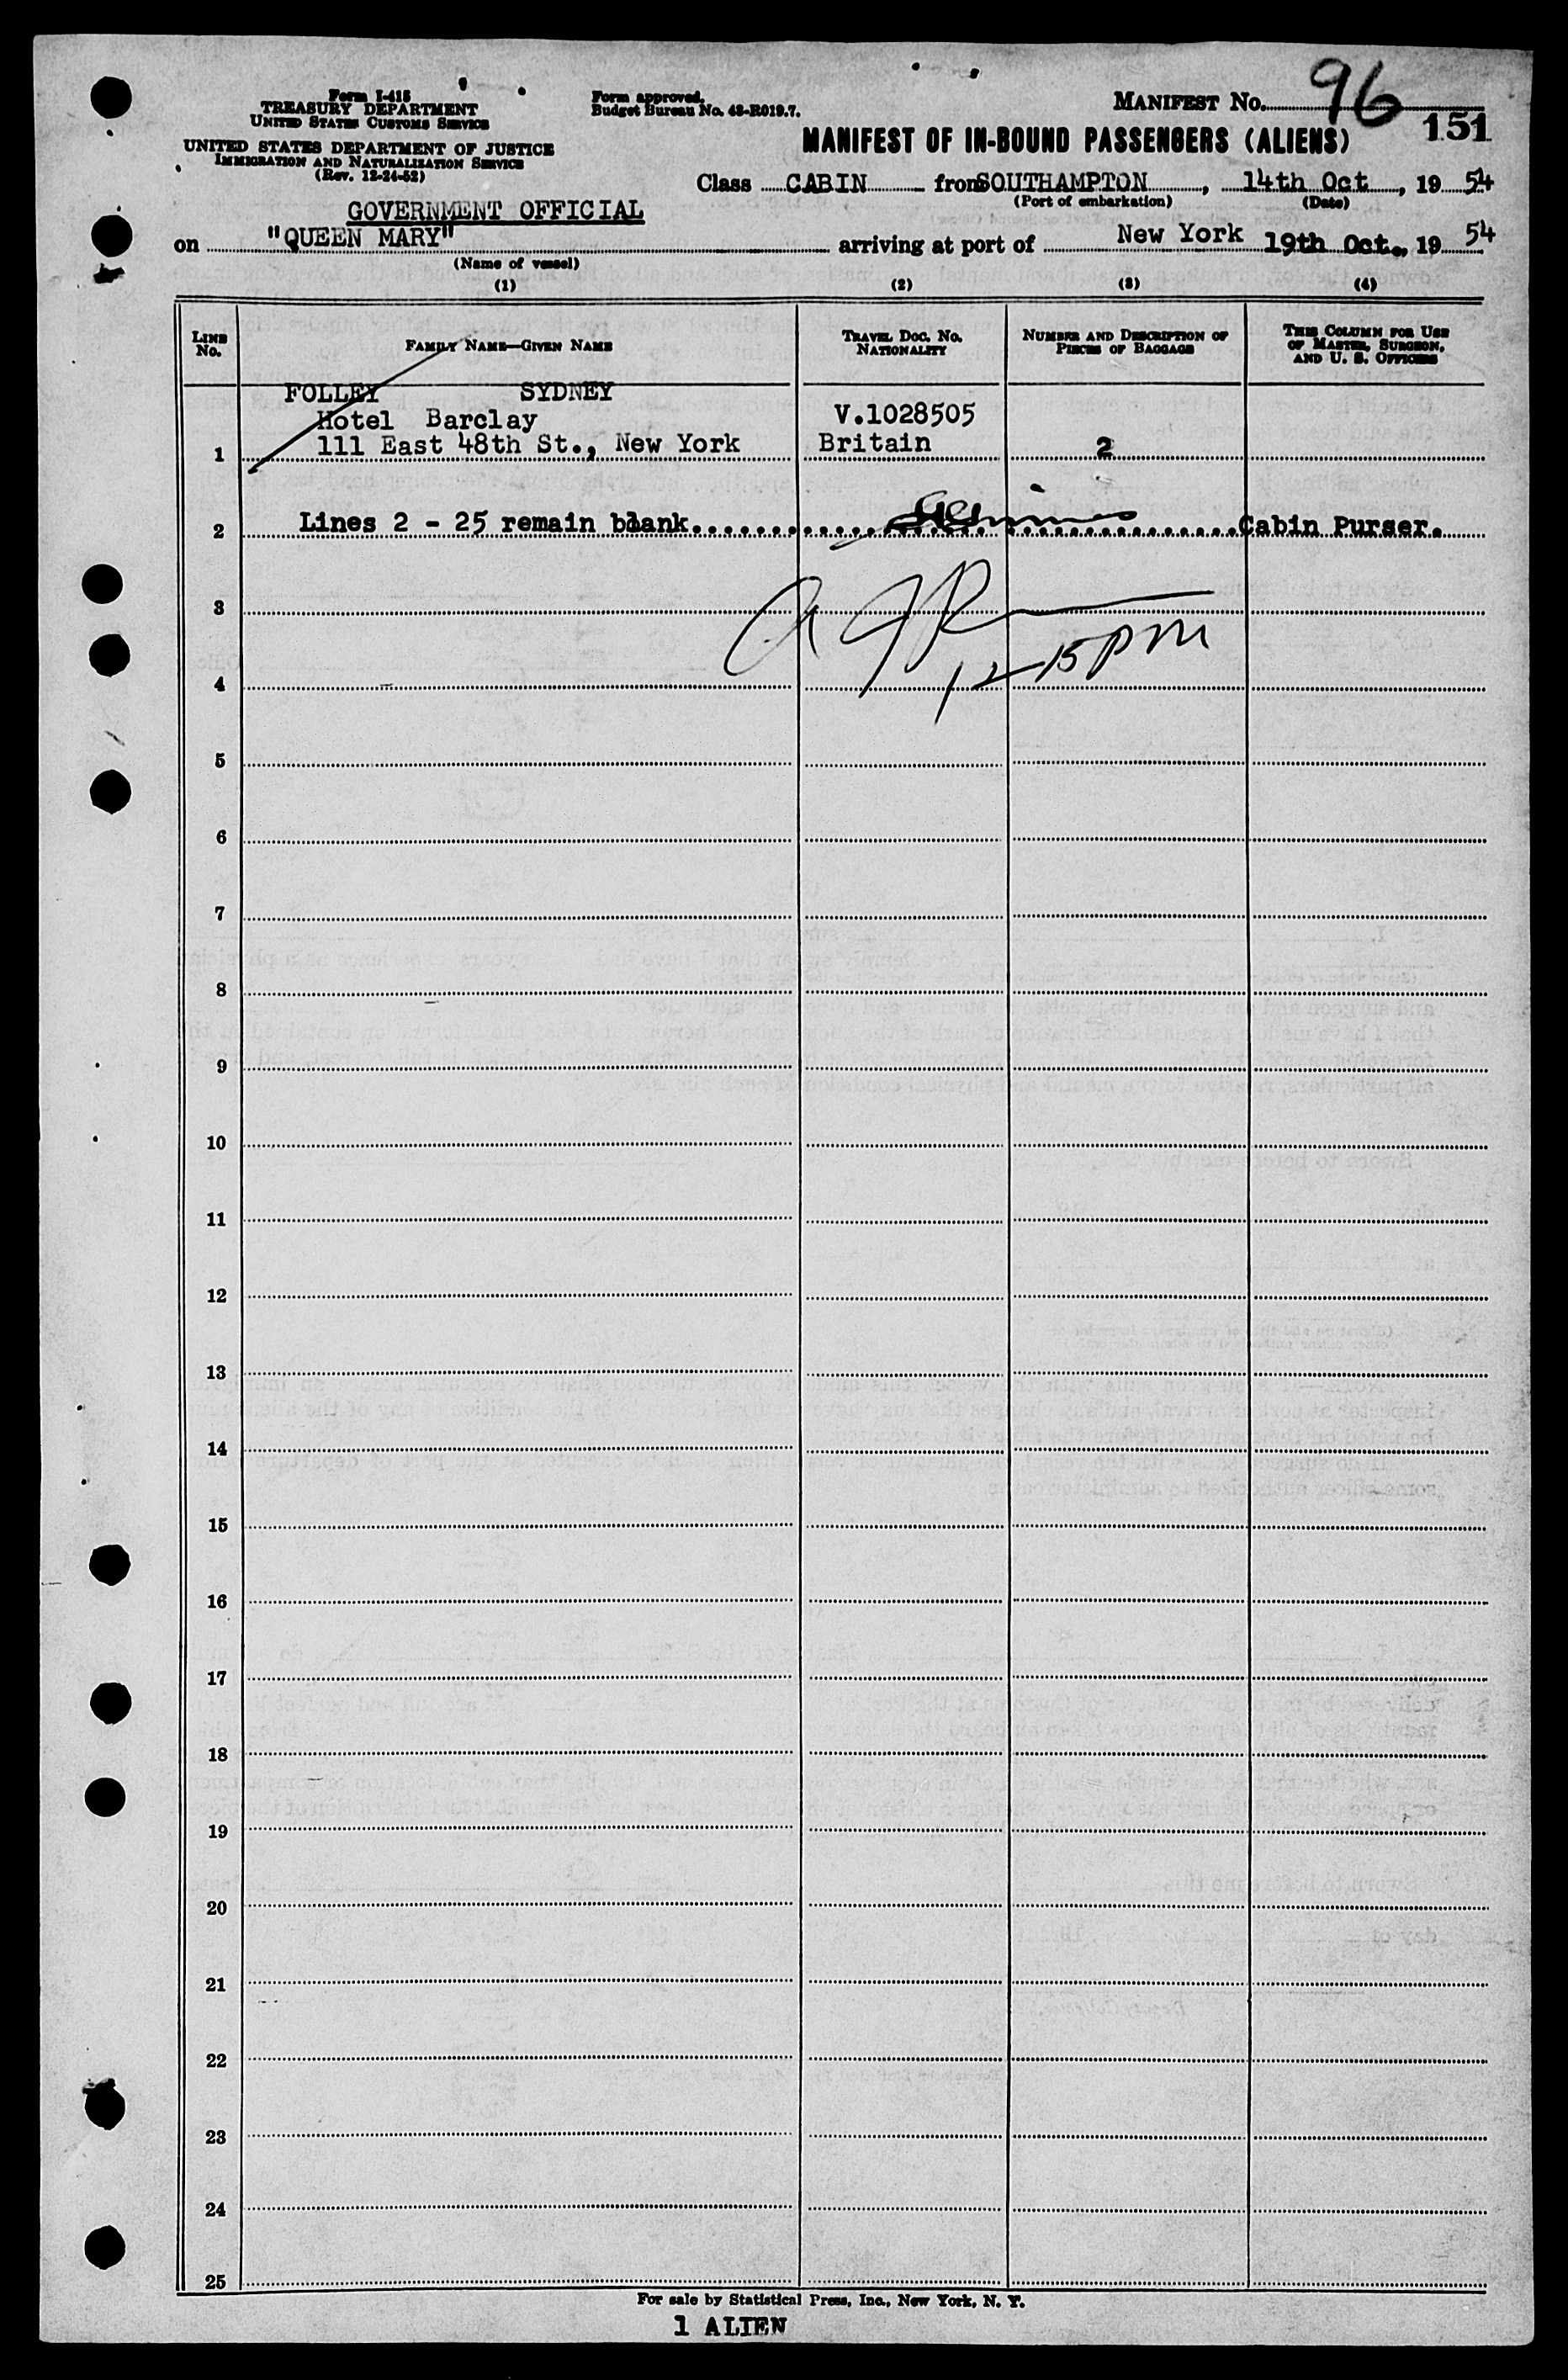 Form I-415
TREASURY DEPARTMENT
UNITED STATES CUSTOMS SERVICE
UNITED STATES DEPARTMENT OF JUSTICE
IMMIGRATION AND NATURALIZATION SERVICE
(Rev. 12-24-52)
Form approved.
Budget Bureau No. 43-R019.7.
MANIFEST No. 96
151
MANIFEST OF IN-BOUND PASSENGERS (ALIENS)
Class CABIN from SOUTHAMPTON, 14th Oct, 19 54
(Port of embarkation) (Date)
GOVERNMENT OFFICIAL
on "QUEEN MARY" arriving at port of New York 19th Oct., 19 54
(Name of vessel)
(1) (2) (3) (4)
LINE No. FAMILY NAME—GIVEN NAME TRAVEL DOC. No. NATIONALITY NUMBER AND DESCRIPTION OF PIECES OF BAGGAGE THIS COLUMN FOR USE OF MASTER, SURGEON, AND U. S. OFFICERS
FOLLEY SYDNEY
Hotel Barclay V.1028505
1 111 East 48th St., New York Britain 2
2 Lines 2 - 25 remain blank. Cabin Purser.
3
12-15 PM
4
5
6
7
8
9
10
11
12
13
14
15
16
17
18
19
20
21
22
23
24
25
For sale by Statistical Press, Inc., New York, N. Y.
1 ALIEN